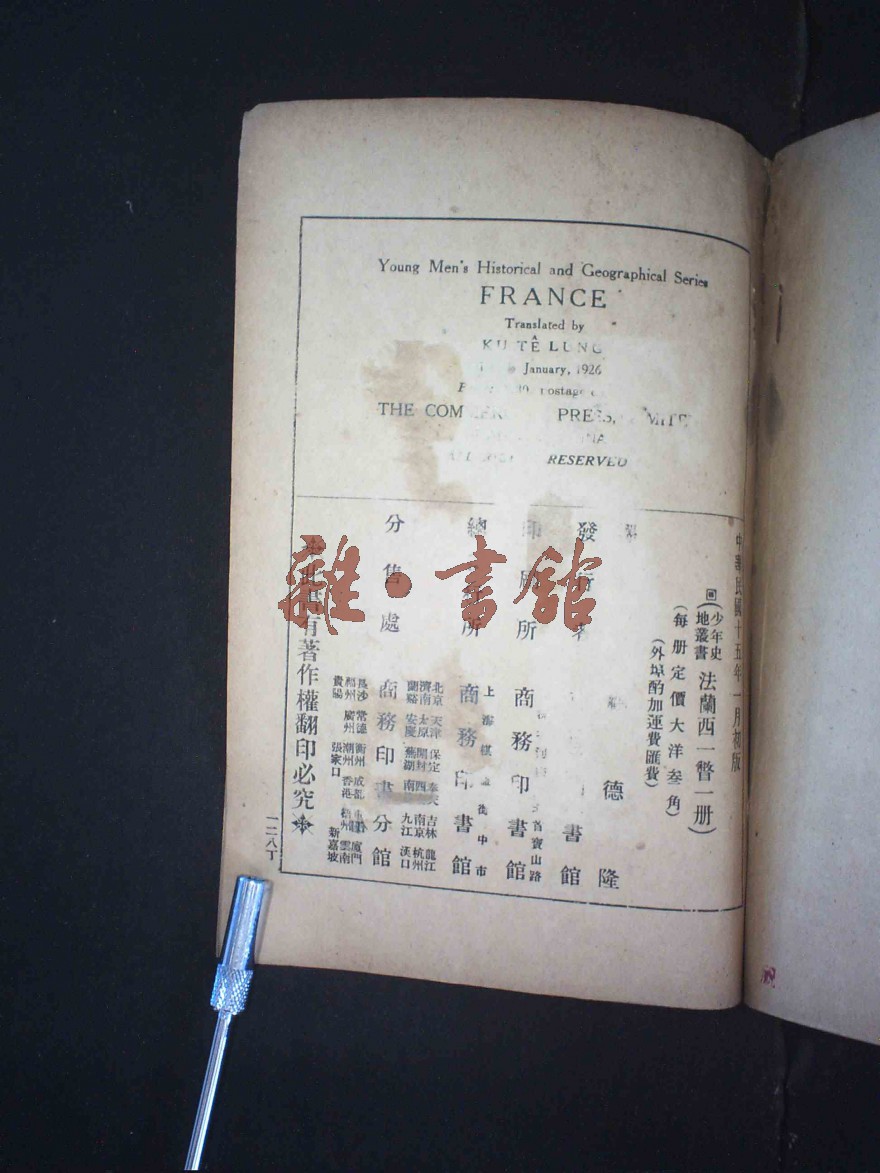 Young Men's Historical and Geographical Series
FRANCE
Translated by
KU TÊ LUNG
January, 1926
postage
THE COM PRESS,
RESERVED
中華民國十五年一月初版
少年史
地叢書
法蘭西一瞥一册
(每册定價大洋叁角)
(外埠酌加運費匯費)
德隆
發行者
書館
印刷所
寶山路
商務印書館
總 所
上海棋 街中市
商務印書館
分售處
北京 天津 保定 奉天 吉林 龍江
濟南 太原 開封 西 南京 杭州
蘭谿 安慶 蕪湖 南 九江 漢口
商務印書分館
長沙 常德 衡州 成都 廈門
福州 廣州 潮州 香港 雲南
貴陽 張家口 新嘉坡
此書有著作權翻印必究
一二八丁
雜·書館